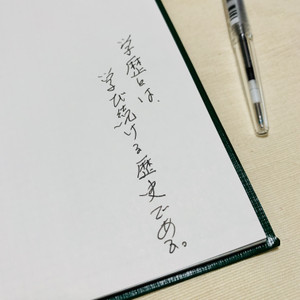 学歴とは、
学び続ける歴史である。